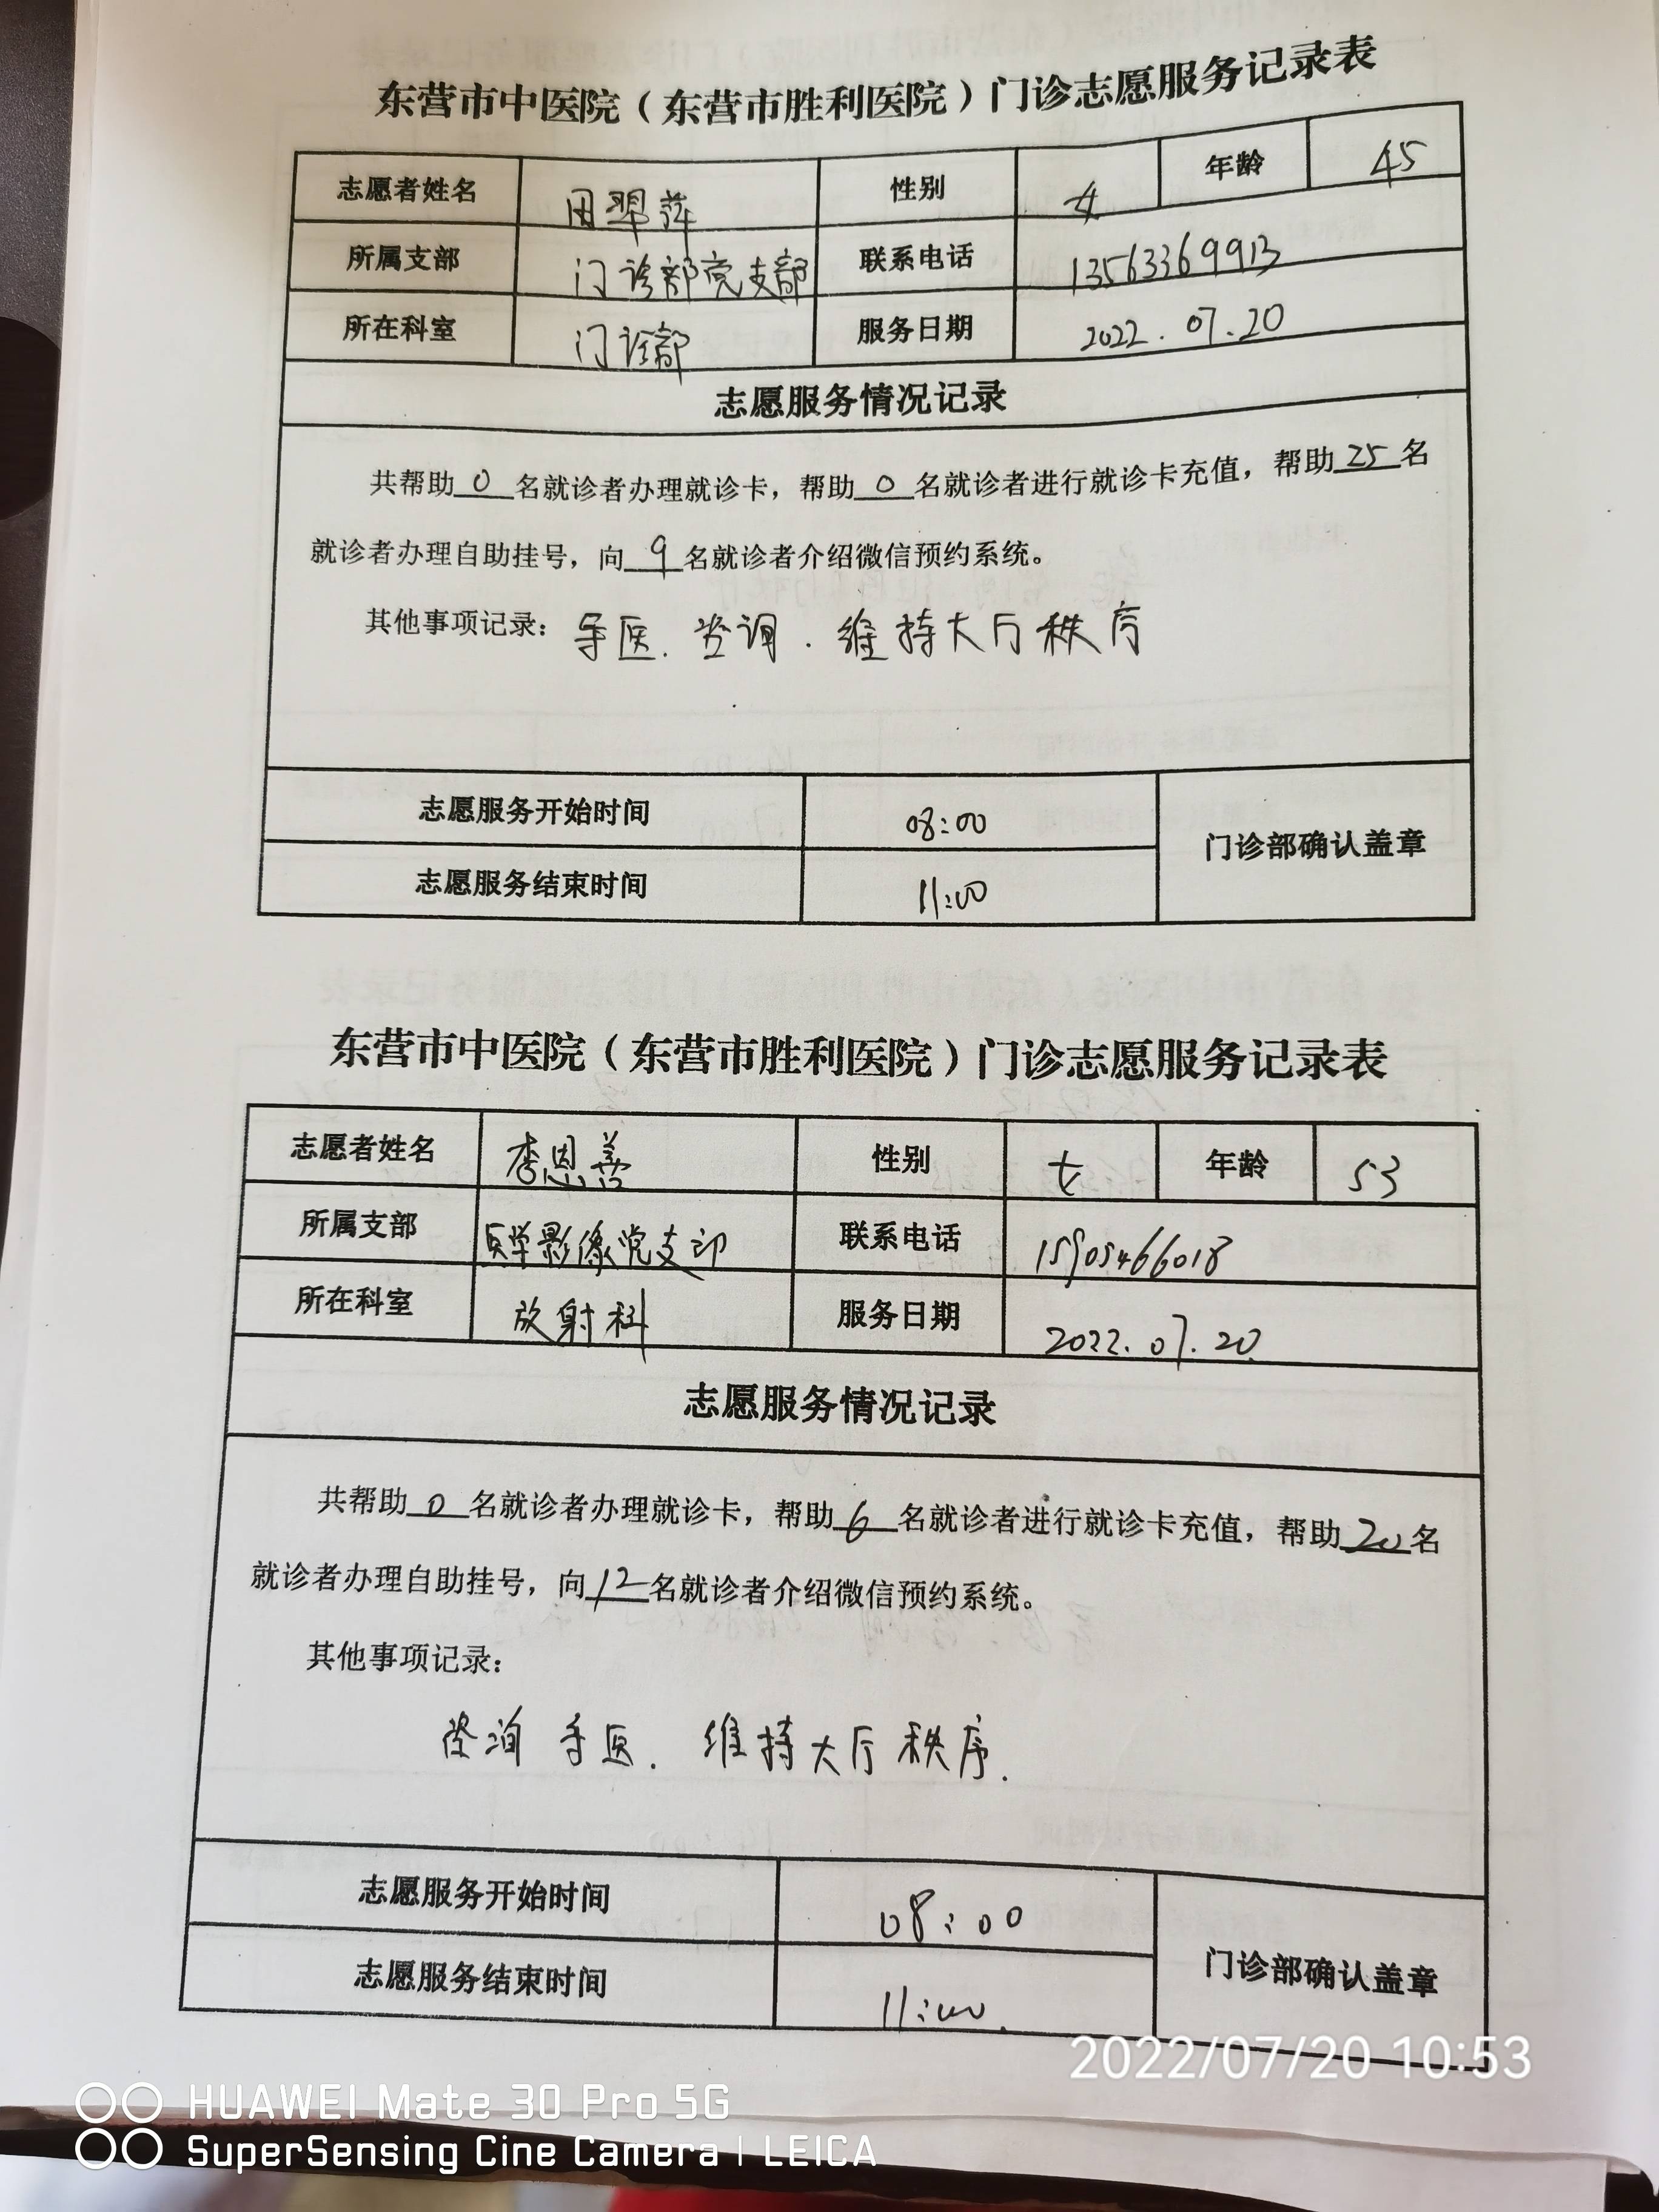 东营市中医院（东营市胜利医院）门诊志愿服务记录表
志愿者姓名 田翠萍 性别 女 年龄 45
所属支部 门诊部党支部 联系电话 13563369913
所在科室 门诊部 服务日期 2022.07.20
志愿服务情况记录
共帮助0名就诊者办理就诊卡，帮助0名就诊者进行就诊卡充值，帮助25名
就诊者办理自助挂号，向9名就诊者介绍微信预约系统。
其他事项记录：导医.咨询.维持大厅秩序
志愿服务开始时间 08:00
门诊部确认盖章
志愿服务结束时间 11:00
东营市中医院（东营市胜利医院）门诊志愿服务记录表
志愿者姓名 李恩善 性别 女 年龄 53
所属支部 医学影像党支部 联系电话 15905466018
所在科室 放射科 服务日期 2022.07.20
志愿服务情况记录
共帮助0名就诊者办理就诊卡，帮助6名就诊者进行就诊卡充值，帮助20名
就诊者办理自助挂号，向12名就诊者介绍微信预约系统。
其他事项记录：
咨询 导医.维持大厅秩序.
志愿服务开始时间 08:00
门诊部确认盖章
志愿服务结束时间 11:00.
2022/07/20 10:53
HUAWEI Mate 30 Pro 5G
SuperSensing Cine Camera | LEICA